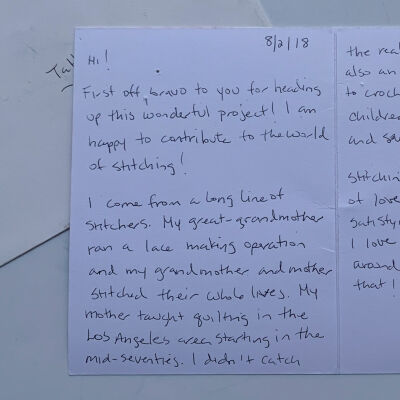 8/2/18
Hi!
First off, bravo to you for heading
up this wonderful project! I am
happy to contribute to the world
of stitching!
I come from a long line of
stitchers. My great-grandmother
ran a lace making operation
and my grandmother and mother
stitched their whole lives. My
mother taught quilting in the
Los Angeles area starting in the
mid-seventies. I didn't catch
the real
also an
to croch
children
and
stitchin
of love
satisfy
I love
around
that!